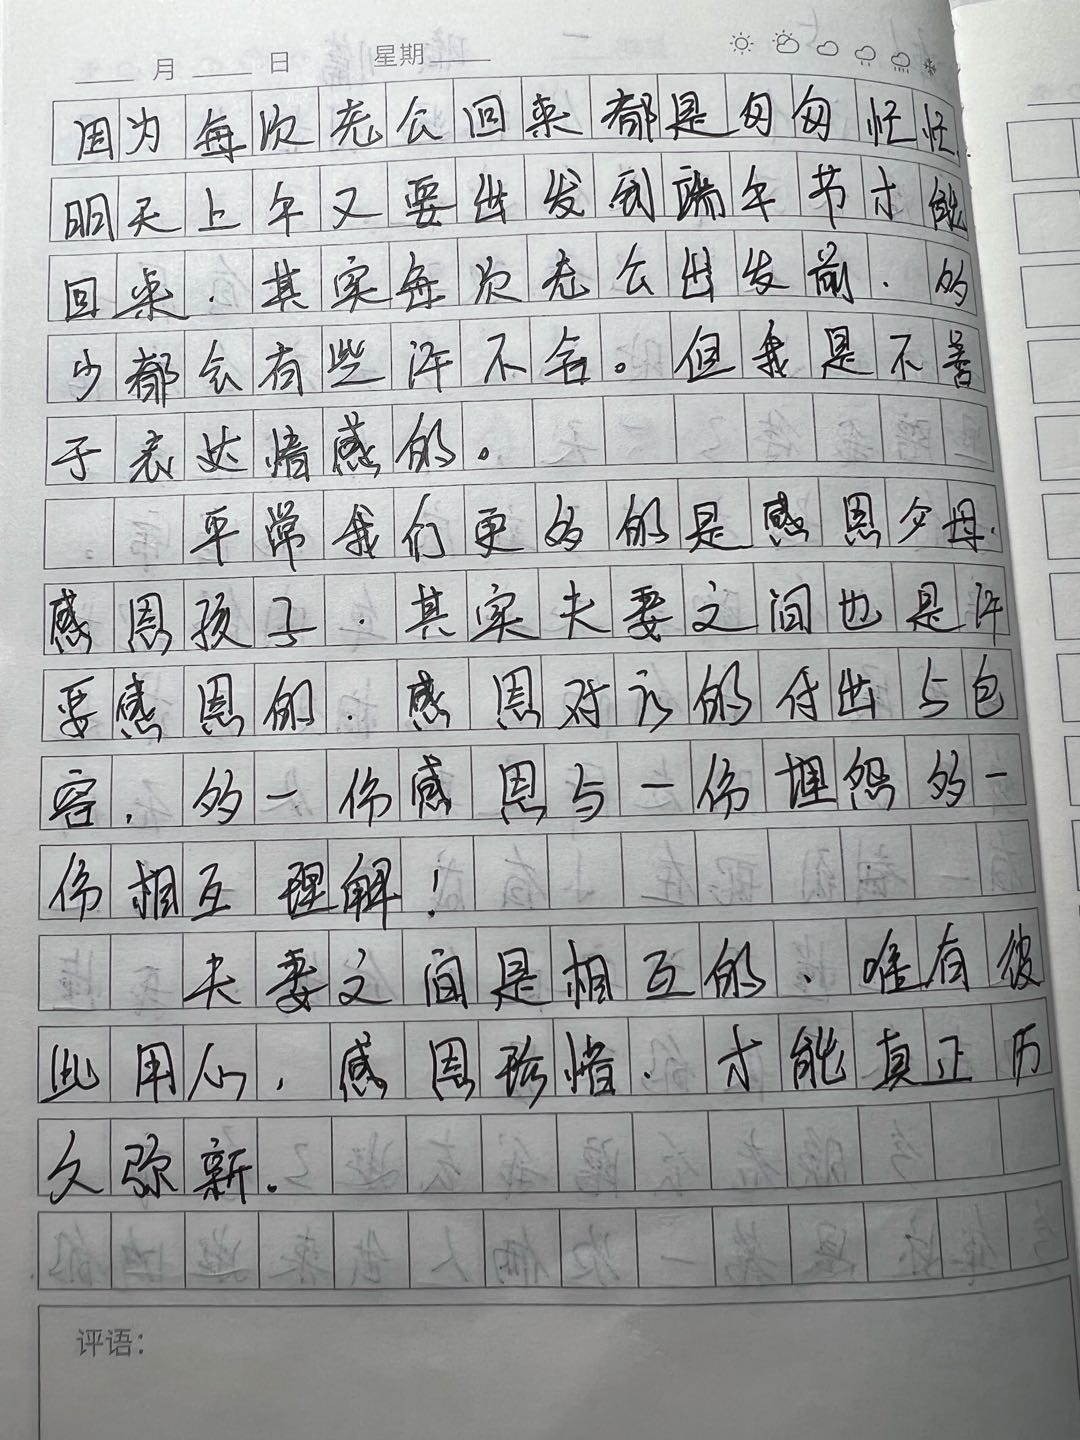 月 日 星期
因为每次老公回来都是匆匆忙忙,
明天上午又要出发到端午节才能
回来.其实每次老公出发前.多
少都会有些许不舍。但我是不善
于表达情感的。
平常我们更多的是感恩父母.
感恩孩子.其实夫妻之间也是许
要感恩的.感恩对方的付出与包
容.多一份感恩与一份埋怨多一
份相互理解!
夫妻之间是相互的、唯有彼
此用心,感恩珍惜.才能真正历
久弥新.
评语: